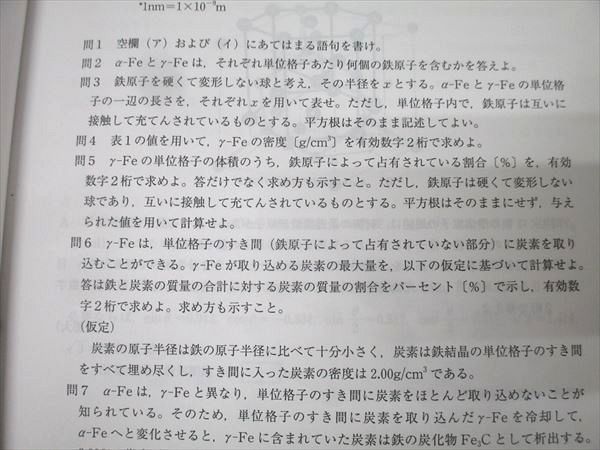 *1nm=1×10⁻⁹m
問1 空欄（ア）および（イ）にあてはまる語句を書け。
問2 α-Feとγ-Feは，それぞれ単位格子あたり何個の鉄原子を含むかを答えよ。
問3 鉄原子を硬くて変形しない球と考え，その半径をxとする。α-Feとγ-Feの単位格
子の一辺の長さを，それぞれxを用いて表せ。ただし，単位格子内で，鉄原子は互いに
接触して充てんされているものとする。平方根はそのまま記述してよい。
問4 表1の値を用いて，γ-Feの密度〔g/cm³〕を有効数字2桁で求めよ。
問5 γ-Feの単位格子の体積のうち，鉄原子によって占有されている割合〔%〕を，有効
数字2桁で求めよ。答だけでなく求め方も示すこと。ただし，鉄原子は硬くて変形しない
球であり，互いに接触して充てんされているものとする。平方根はそのままにせず，与え
られた値を用いて計算せよ。
問6 γ-Feは，単位格子のすき間（鉄原子によって占有されていない部分）に炭素を取り
込むことができる。γ-Feが取り込める炭素の最大量を，以下の仮定に基づいて計算せよ。
答は鉄と炭素の質量の合計に対する炭素の質量の割合をパーセント〔%〕で示し，有効数
字2桁で求めよ。求め方も示すこと。
（仮定）
炭素の原子半径は鉄の原子半径に比べて十分小さく，炭素は鉄結晶の単位格子のすき間
をすべて埋め尽くし，すき間に入った炭素の密度は2.00g/cm³である。
問7 α-Feは，γ-Feと異なり，単位格子のすき間に炭素をほとんど取り込めないことが
知られている。そのため，単位格子のすき間に炭素を取り込んだγ-Feを冷却して，
α-Feへと変化させると，γ-Feに含まれていた炭素は鉄の炭化物Fe₃Cとして析出する。